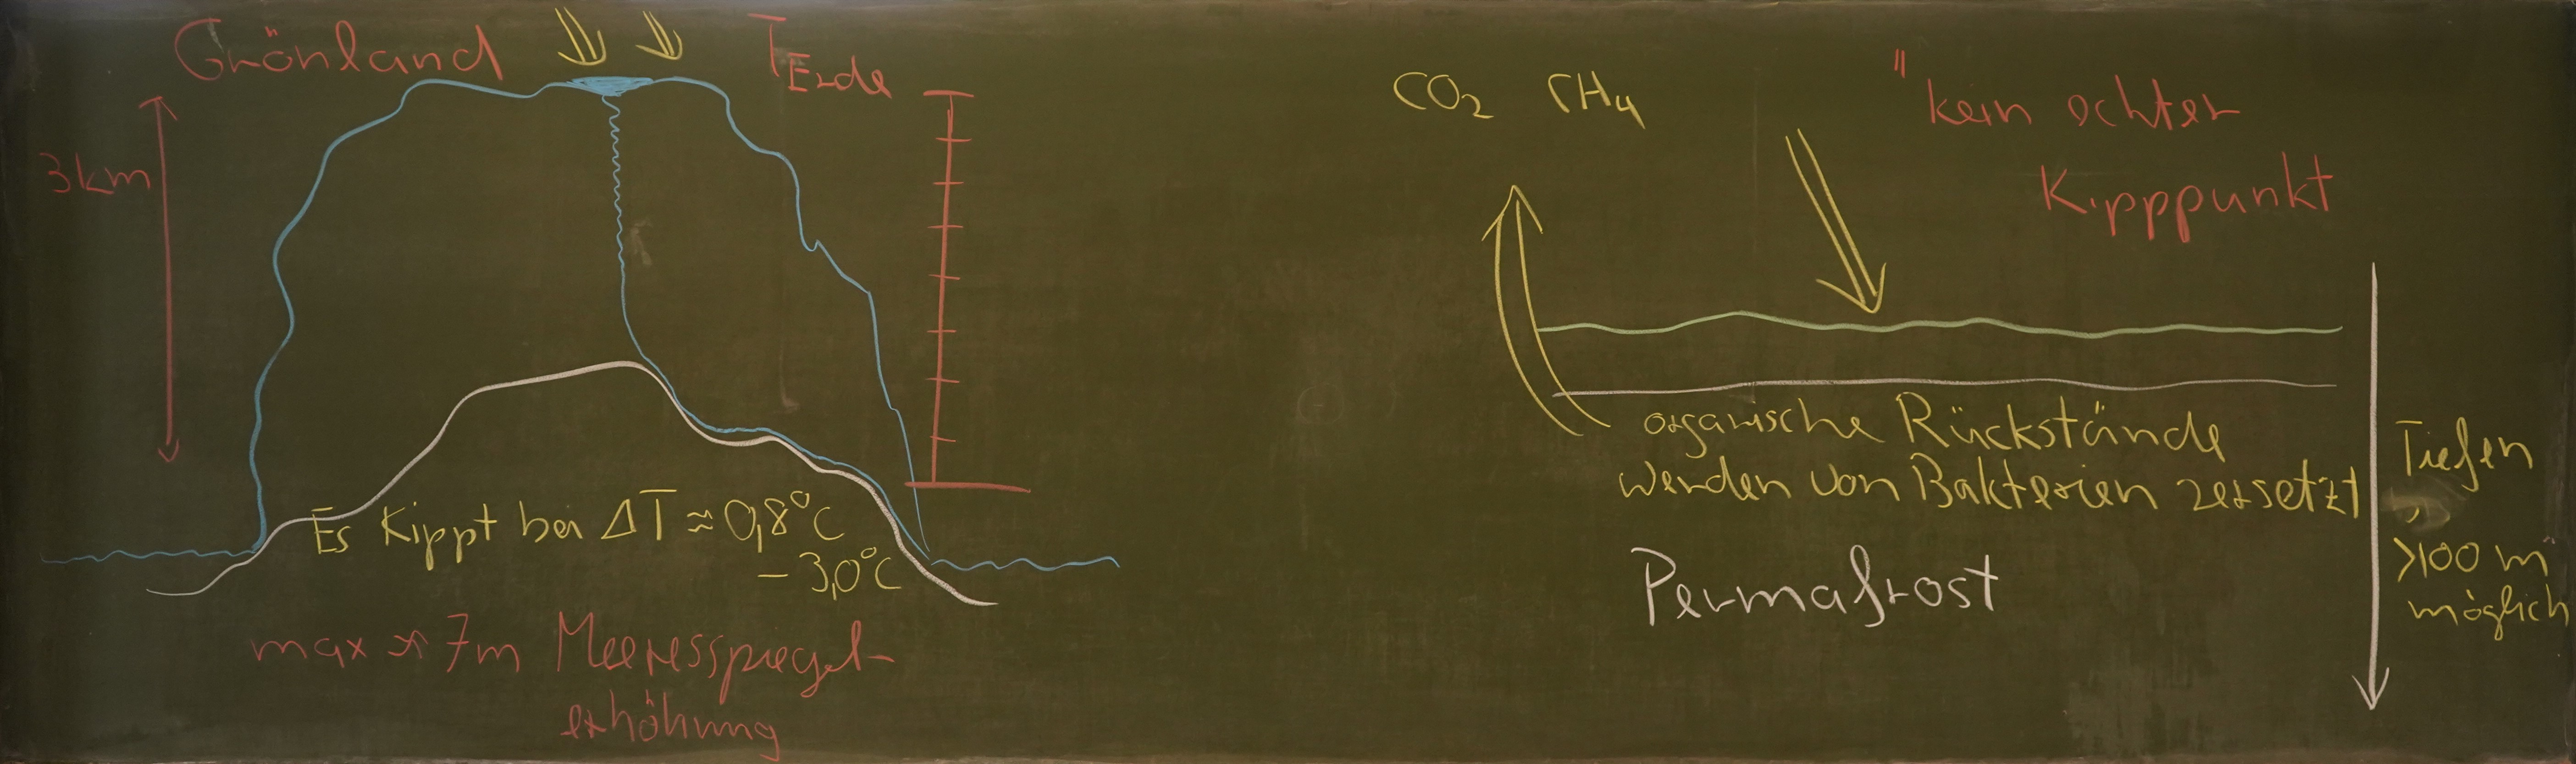 Grönland
T Erde
3km
Es Kippt bei ΔT ≈ 0,8°C
- 3,0°C
max ≈ 7m Meeresspiegel-
erhöhung
CO₂ CH₄
"kein echter
Kipppunkt
organische Rückstände
werden von Bakterien zersetzt
Permafrost
Tiefen
>100 m
möglich